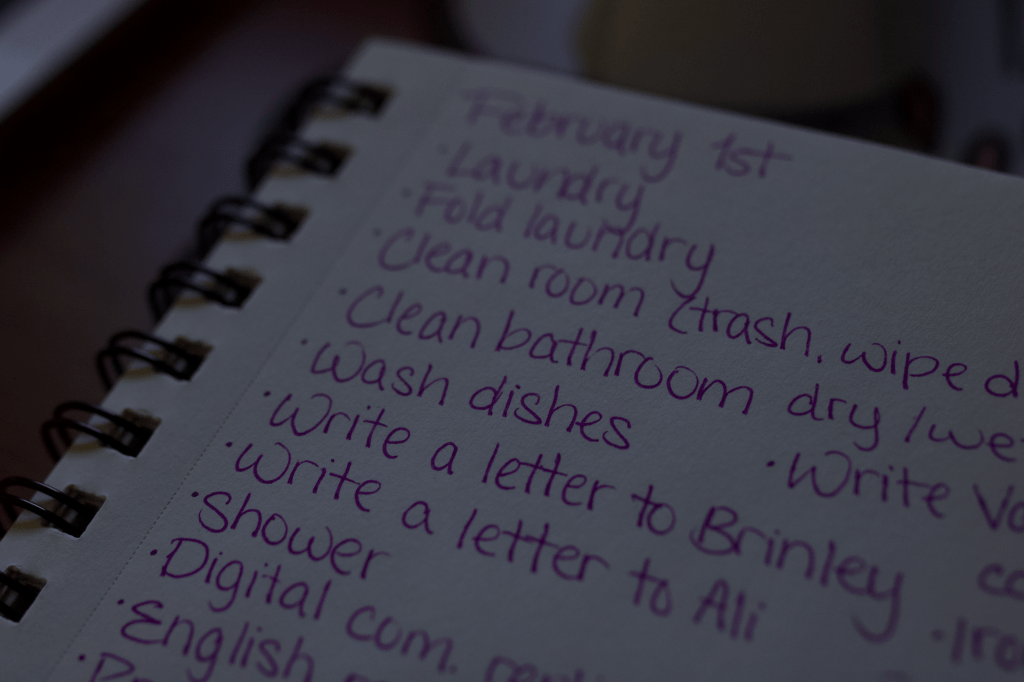 February 1st
· Laundry
· Fold laundry
· Clean room (trash, wipe d
· Clean bathroom dry/we
· Wash dishes
· Write
· Write a letter to Brinley
· Write a letter to Ali
· Iro
· Shower
· Digital com.
· English